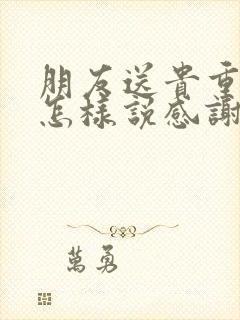 朋友送貴重
怎樣說感謝
萬勇